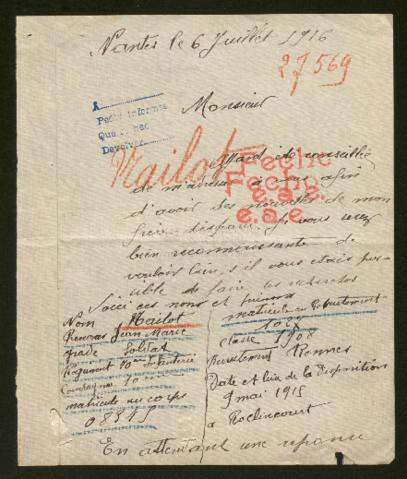 Nantes le 6 Juillet 1916
27569
Monsieur
A
Pedir informes
Que
Devolver
Mailot
Feche
Feche
e.a.e.
de m'adresser à vous afin
d'avoir des nouvelles de mon
frère disparu. Je vous serez
bien reconnaissante de
vouloir bien, s'il vous était pos-
sible de faire les recherches
Voici ces noms et
Nom Mailot
Prénoms Jean Marie
grade Soldat
Régiment 70me Infanterie
Compagnie 10me
matricule au corps
08315
matricule au recrutement
1025
classe 1908
Recrutement Rennes
Date et lieu de la disparition
9 mai 1915
a Roclincourt
En attendant une réponse